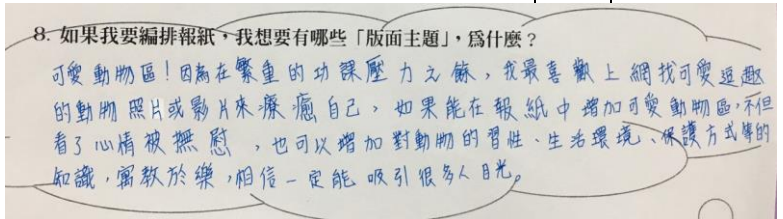 8. 如果我要編排報紙，我想要有哪些「版面主題」，為什麼？
可愛動物區！因為在繁重的功課壓力之餘，我最喜歡上網找可愛逗趣
的動物照片或影片來療癒自己，如果能在報紙中增加可愛動物區，不但
看了心情被撫慰，也可以增加對動物的習性、生活環境、保護方式等的
知識，寓教於樂，相信一定能吸引很多人目光。